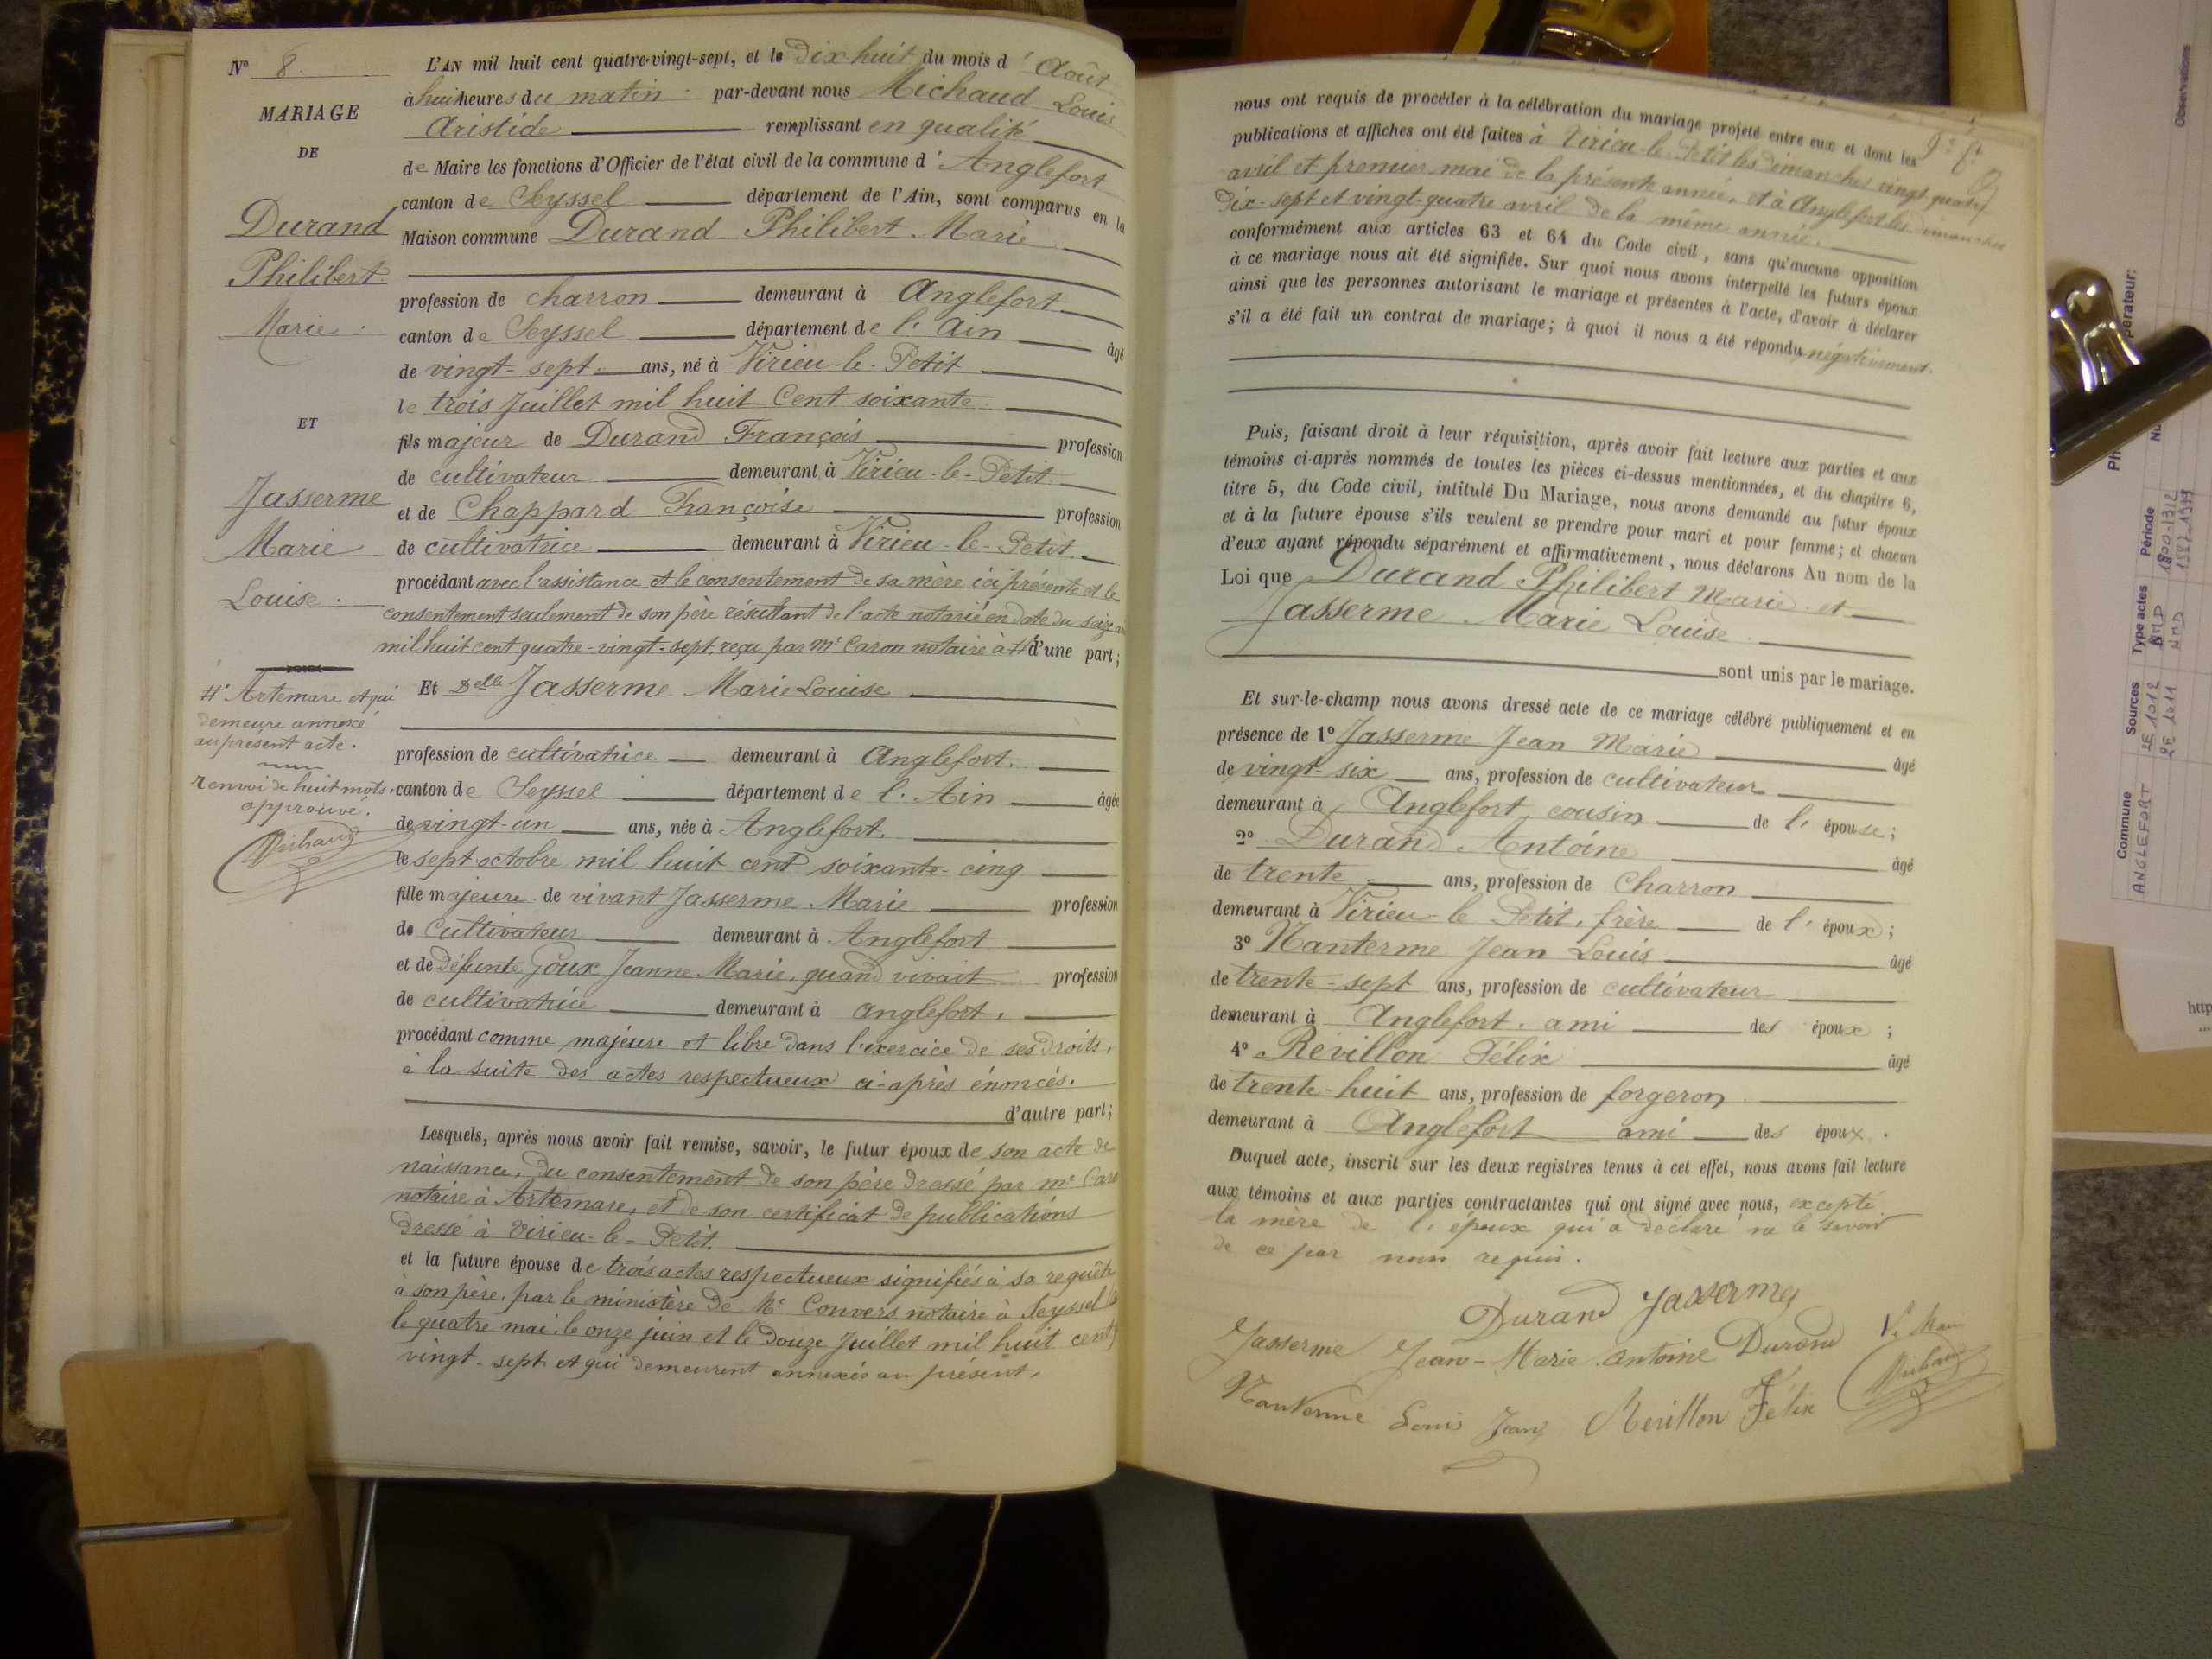 N° 8.
MARIAGE
DE
Durand
Philibert
Marie.
ET
Jasserme
Marie
Louise.
#. Artemare et qui
demeure annexé
au présent acte.
renvoi de huit mots
approuvé.
Michaud
L'AN mil huit cent quatre-vingt-sept, et le dix huit du mois d'Août
à huit heures du matin par-devant nous Michaud Louis
Aristide remplissant en qualité
de Maire les fonctions d'Officier de l'état civil de la commune d'Anglefort
canton de Seyssel département de l'Ain, sont comparus en la
Maison commune Durand Philibert Marie
profession de charron demeurant à Anglefort
canton de Seyssel département de l'Ain âgé
de vingt-sept ans, né à Virieu-le-Petit
le trois Juillet mil huit Cent soixante.
fils majeur de Durand François profession
de cultivateur demeurant à Virieu-le-Petit.
et de Chappard Françoise profession
de cultivatrice demeurant à Virieu-le-Petit.
procédant avec l'assistance et le consentement de sa mère ici présente et le
consentement seulement de son père résultant de l'acte notarié en date du seize
mil huit cent quatre-vingt-sept, reçu par Me Caron notaire à # d'une part;
Et Delle Jasserme Marie Louise
profession de cultivatrice demeurant à Anglefort.
canton de Seyssel département de l'Ain âgée
de vingt-un ans, née à Anglefort.
le sept octobre mil huit cent soixante-cinq
fille majeure de vivant Jasserme Marie profession
de cultivateur demeurant à Anglefort
et de défunte Goux Jeanne Marie, quand vivait profession
de cultivatrice demeurant à Anglefort.
procédant comme majeure et libre dans l'exercice de ses droits,
à la suite des actes respectueux ci-après énoncés.
d'autre part;
Lesquels, après nous avoir fait remise, savoir, le futur époux de son acte de
naissance, du consentement de son père dressé par Me Caron
notaire à Artemare, et de son certificat de publications
dressé à Virieu-le-Petit.
et la future épouse de trois actes respectueux signifiés à sa requête
à son père, par le ministère de Me Convers notaire à Seyssel
le quatre mai, le onze juin et le douze Juillet mil huit cent
vingt-sept et qui demeurent annexés au présent,
nous ont requis de procéder à la célébration du mariage projeté entre eux et dont les
publications et affiches ont été faites à Virieu-le-Petit les dimanches vingt quatre
avril et premier mai de la présente année, et à Anglefort les dimanches
dix-sept et vingt-quatre avril de la même année.
conformément aux articles 63 et 64 du Code civil, sans qu'aucune opposition
à ce mariage nous ait été signifiée. Sur quoi nous avons interpellé les futurs époux
ainsi que les personnes autorisant le mariage et présentes à l'acte, d'avoir à déclarer
s'il a été fait un contrat de mariage; à quoi il nous a été répondu négativement.
Puis, faisant droit à leur réquisition, après avoir fait lecture aux parties et aux
témoins ci-après nommés de toutes les pièces ci-dessus mentionnées, et du chapitre 6,
titre 5, du Code civil, intitulé Du Mariage, nous avons demandé au futur époux
et à la future épouse s'ils veulent se prendre pour mari et pour femme; et chacun
d'eux ayant répondu séparément et affirmativement, nous déclarons Au nom de la
Loi que Durand Philibert Marie et
Jasserme Marie Louise.
sont unis par le mariage.
Et sur-le-champ nous avons dressé acte de ce mariage célébré publiquement et en
présence de 1° Jasserme Jean Marie âgé
de vingt-six ans, profession de cultivateur
demeurant à Anglefort, cousin de l'épouse;
2° Durand Antoine âgé
de trente ans, profession de Charron
demeurant à Virieu-le Petit, frère de l'époux;
3° Nanterme Jean Louis âgé
de trente-sept ans, profession de cultivateur
demeurant à Anglefort. ami des époux;
4° Révillon Félix âgé
de trente-huit ans, profession de forgeron
demeurant à Anglefort ami des époux.
Duquel acte, inscrit sur les deux registres tenus à cet effet, nous avons fait lecture
aux témoins et aux parties contractantes qui ont signé avec nous, excepté
la mère de l'époux qui a déclaré ne le savoir
de ce par nous requis.
Durand Jasserme
Jasserme Jean-Marie Antoine Durand
Michaud
Nanterme Louis Jean Revillon Félix
Observations
Commune Sources Type actes Période
ANGLEFORT 2E 1012 BMD
2E 1011 NMD
http